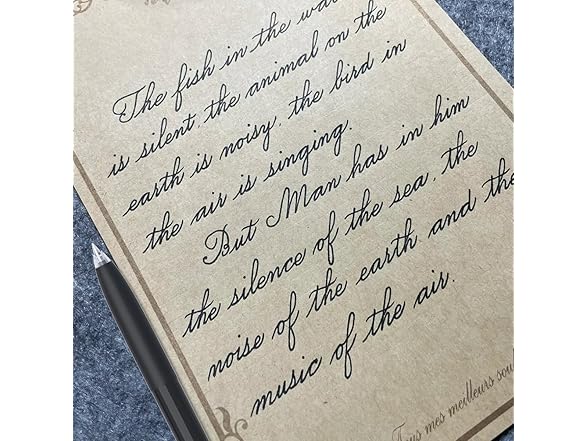 The fish in the wat
is silent, the animal on the
earth is noisy, the bird in
the air is singing.
But Man has in him
the silence of the sea, the
noise of the earth and the
music of the air.
Tous mes meilleurs sou